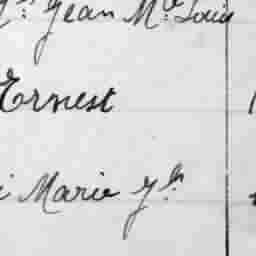 Jean M.ie Louis
Ernest
Marie J.ph